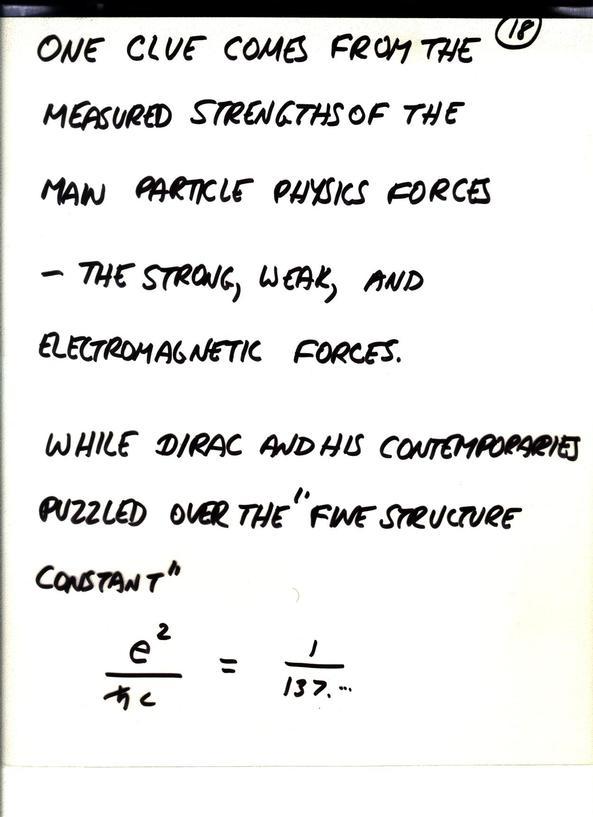 18
ONE CLUE COMES FROM THE
MEASURED STRENGTHS OF THE
MAIN PARTICLE PHYSICS FORCES
- THE STRONG, WEAK, AND
ELECTROMAGNETIC FORCES.
WHILE DIRAC AND HIS CONTEMPORARIES
PUZZLED OVER THE "FINE STRUCTURE
CONSTANT"
e²/ħc = 1/137....